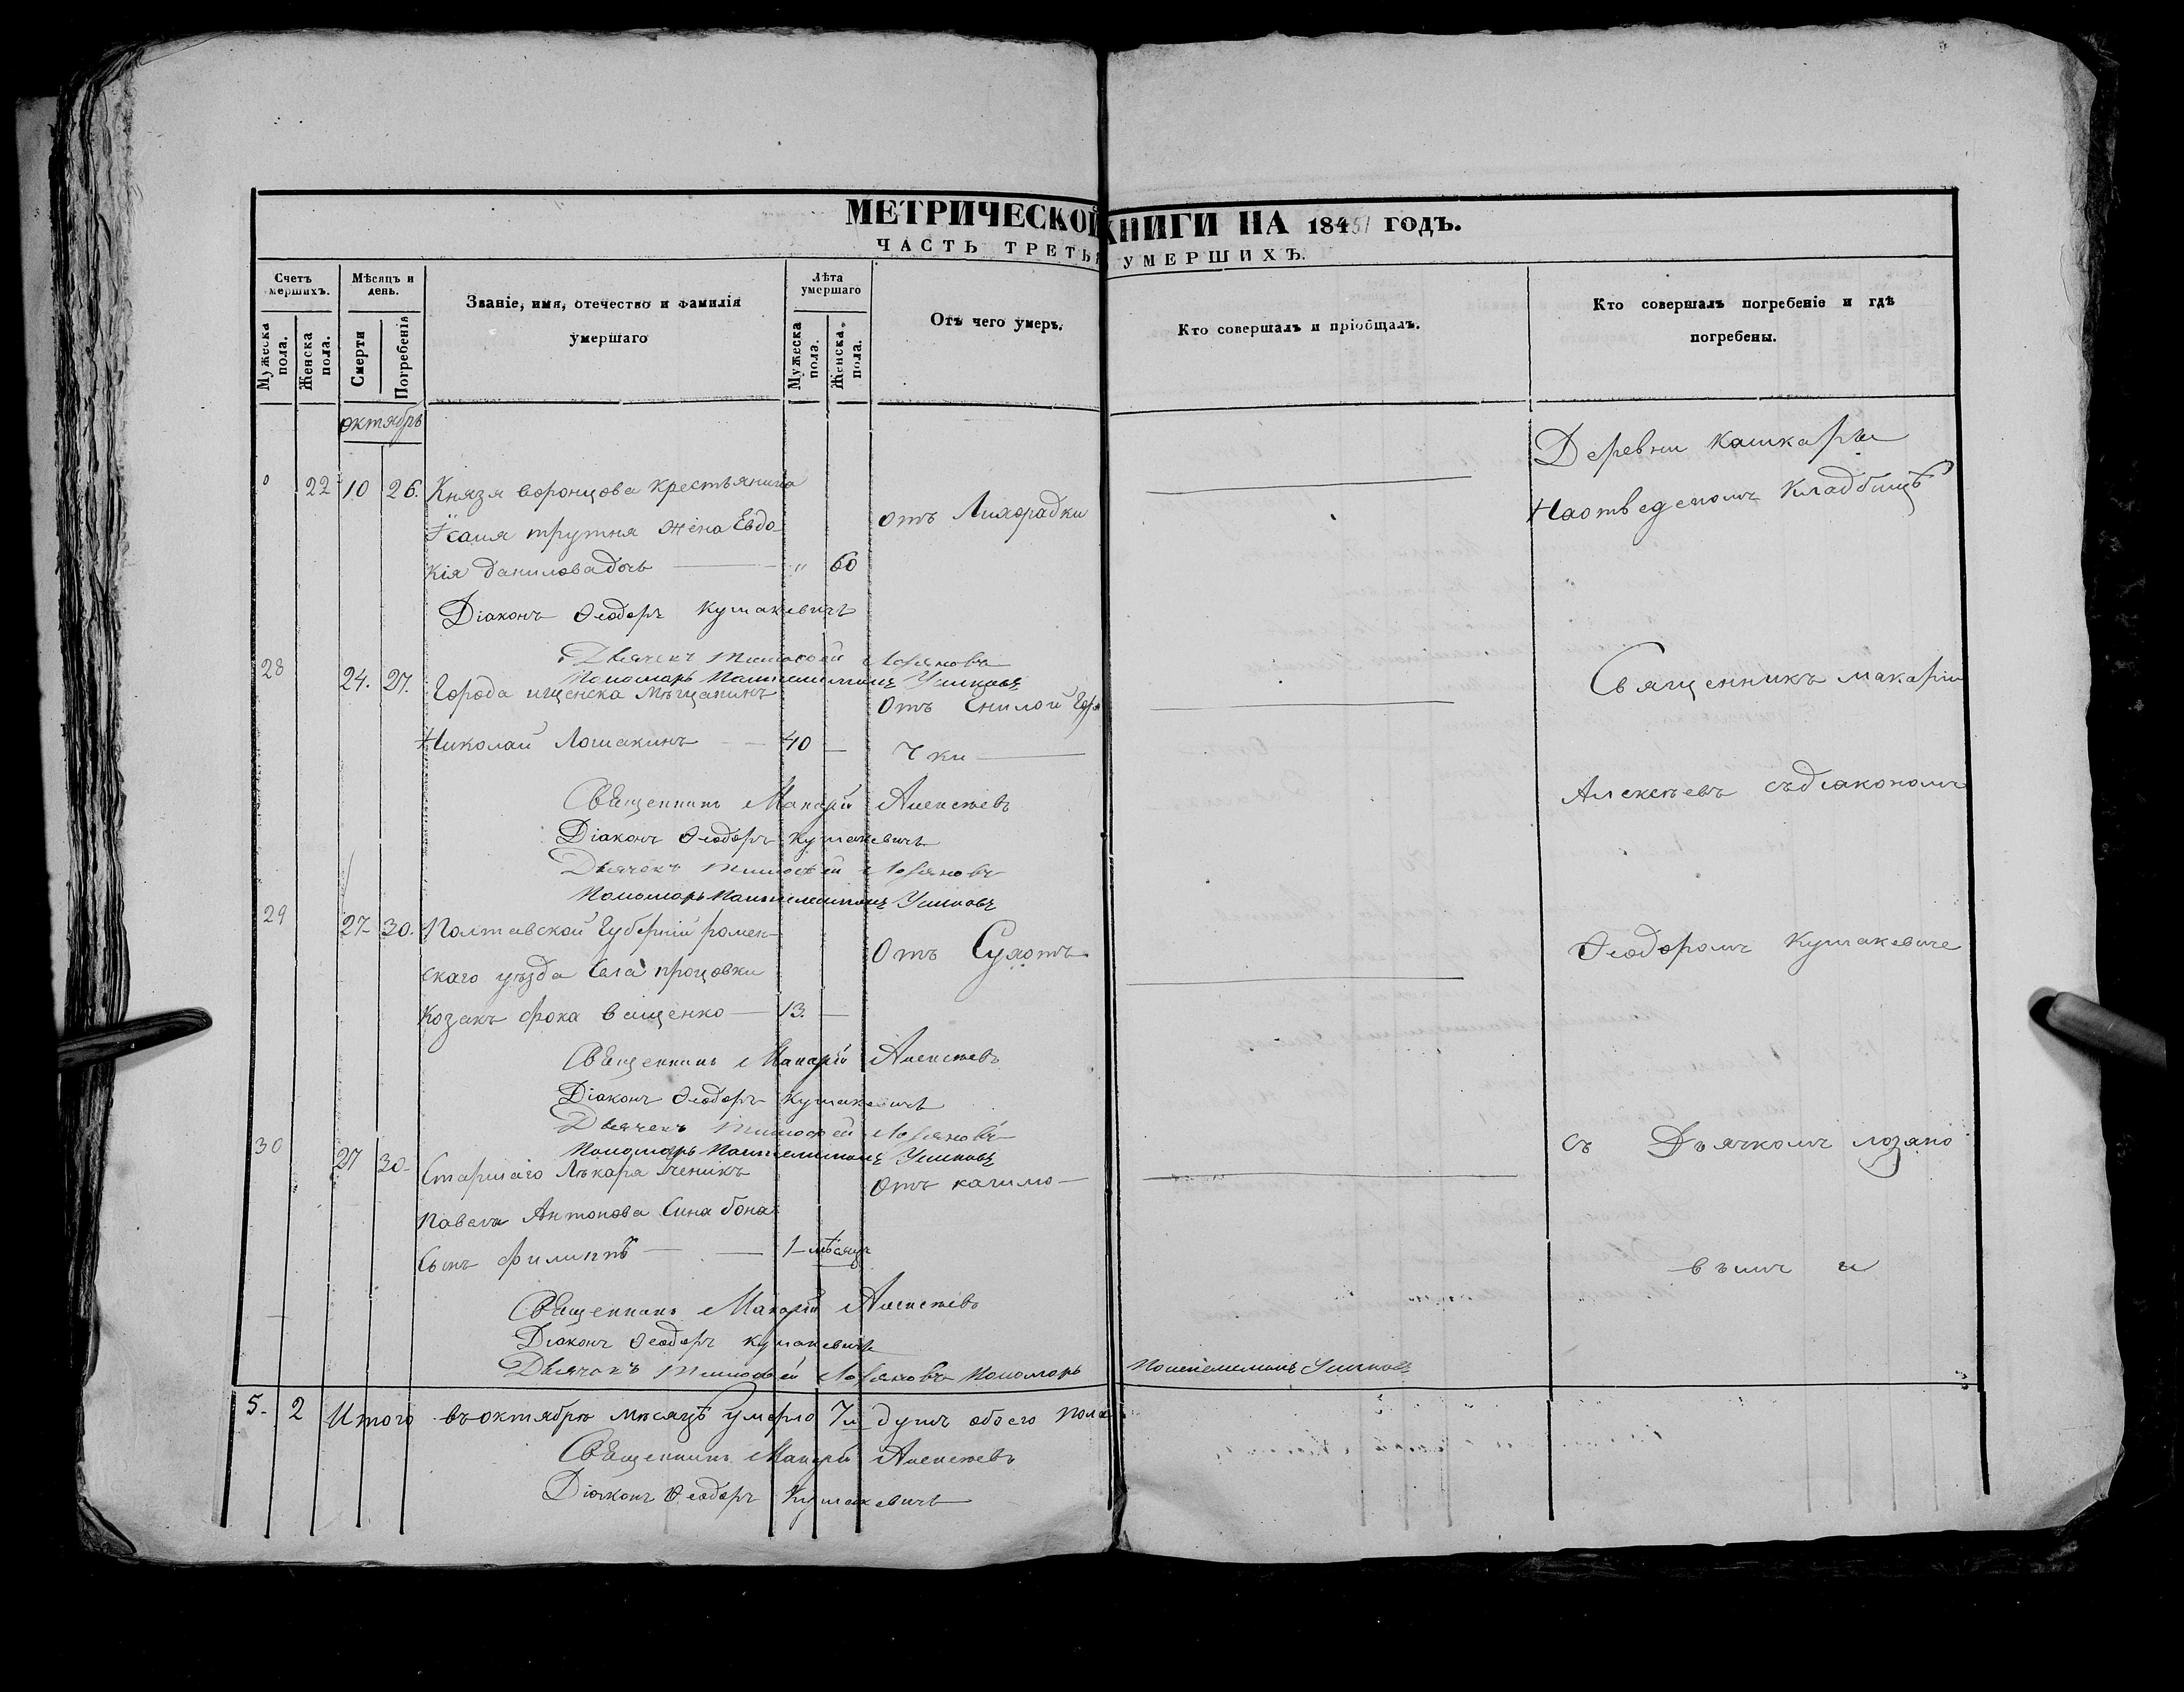 МЕТРИЧЕСКОЙ КНИГИ НА 1851 ГОДЪ.
ЧАСТЬ ТРЕТЬЯ УМЕРШИХЪ.
Счетъ мершихъ.
Мужеска пола.
Женска пола.
Мѣсяцъ и день.
Смерти
Погребенія
Званіе, имя, отечество и фамилія умершаго
Лѣта умершаго
Мужеска пола.
Женска пола.
Отъ чего умеръ.
Кто совершалъ и пріобщалъ.
Кто совершалъ погребеніе и гдѣ погребены.
октябрь
22 10 26. Князя воронцова крестьянина
Исаия трутня жена Евдо-
кія данилова дочь — " 60
отъ Лихорадки
Деревни кашкары
На отведеномъ кладбищѣ
Діаконъ Ѳеодоръ Кушакевичъ
Дьячекъ Тимофей Лозяновъ
Пономарь Пантелеимонъ Ушковъ
28 24. 27. Города мценска мѣщанинъ
Николай Лошакинъ — 40 —
Отъ Гнилой Горя
чки —
Священникъ макарій
Священникъ Макарій Алексѣевъ
Діаконъ Ѳеодоръ Кушакевичъ
Дьячекъ Тимофей Лозяновъ
Пономарь Пантелеимонъ Ушковъ
Алексѣевъ съ діакономъ
29 27 30. Полтавской Губерніи ромен-
скаго уѣзда села процовки
Козакъ фока ващенко — 13. —
Отъ Сухотъ
Ѳеодоромъ Кушакевиче
Священникъ Макарій Алексѣевъ
Діаконъ Ѳеодоръ Кушакевичъ
Дьячекъ Тимофей Лозяновъ
Пономарь Пантелеимонъ Ушковъ
30 27 30 Старшаго Лѣкаря Ученикъ
Павела Антонова Сина бона
Сынъ филиппъ — 1 мѣсяцъ
Отъ кашлю —
съ Дьячкомъ лозяно
вымъ и
Священникъ Макарій Алексѣевъ
Діаконъ Ѳеодоръ Кушакевичъ
Дьячекъ Тимофей Лозяновъ Пономарь Пантелеимонъ Ушковъ
5. 2 Итого въ октябрѣ мѣсяцѣ умерло 7м душъ обоего пола
Священникъ Макарій Алексѣевъ
Діаконъ Ѳеодоръ Кушакевичъ